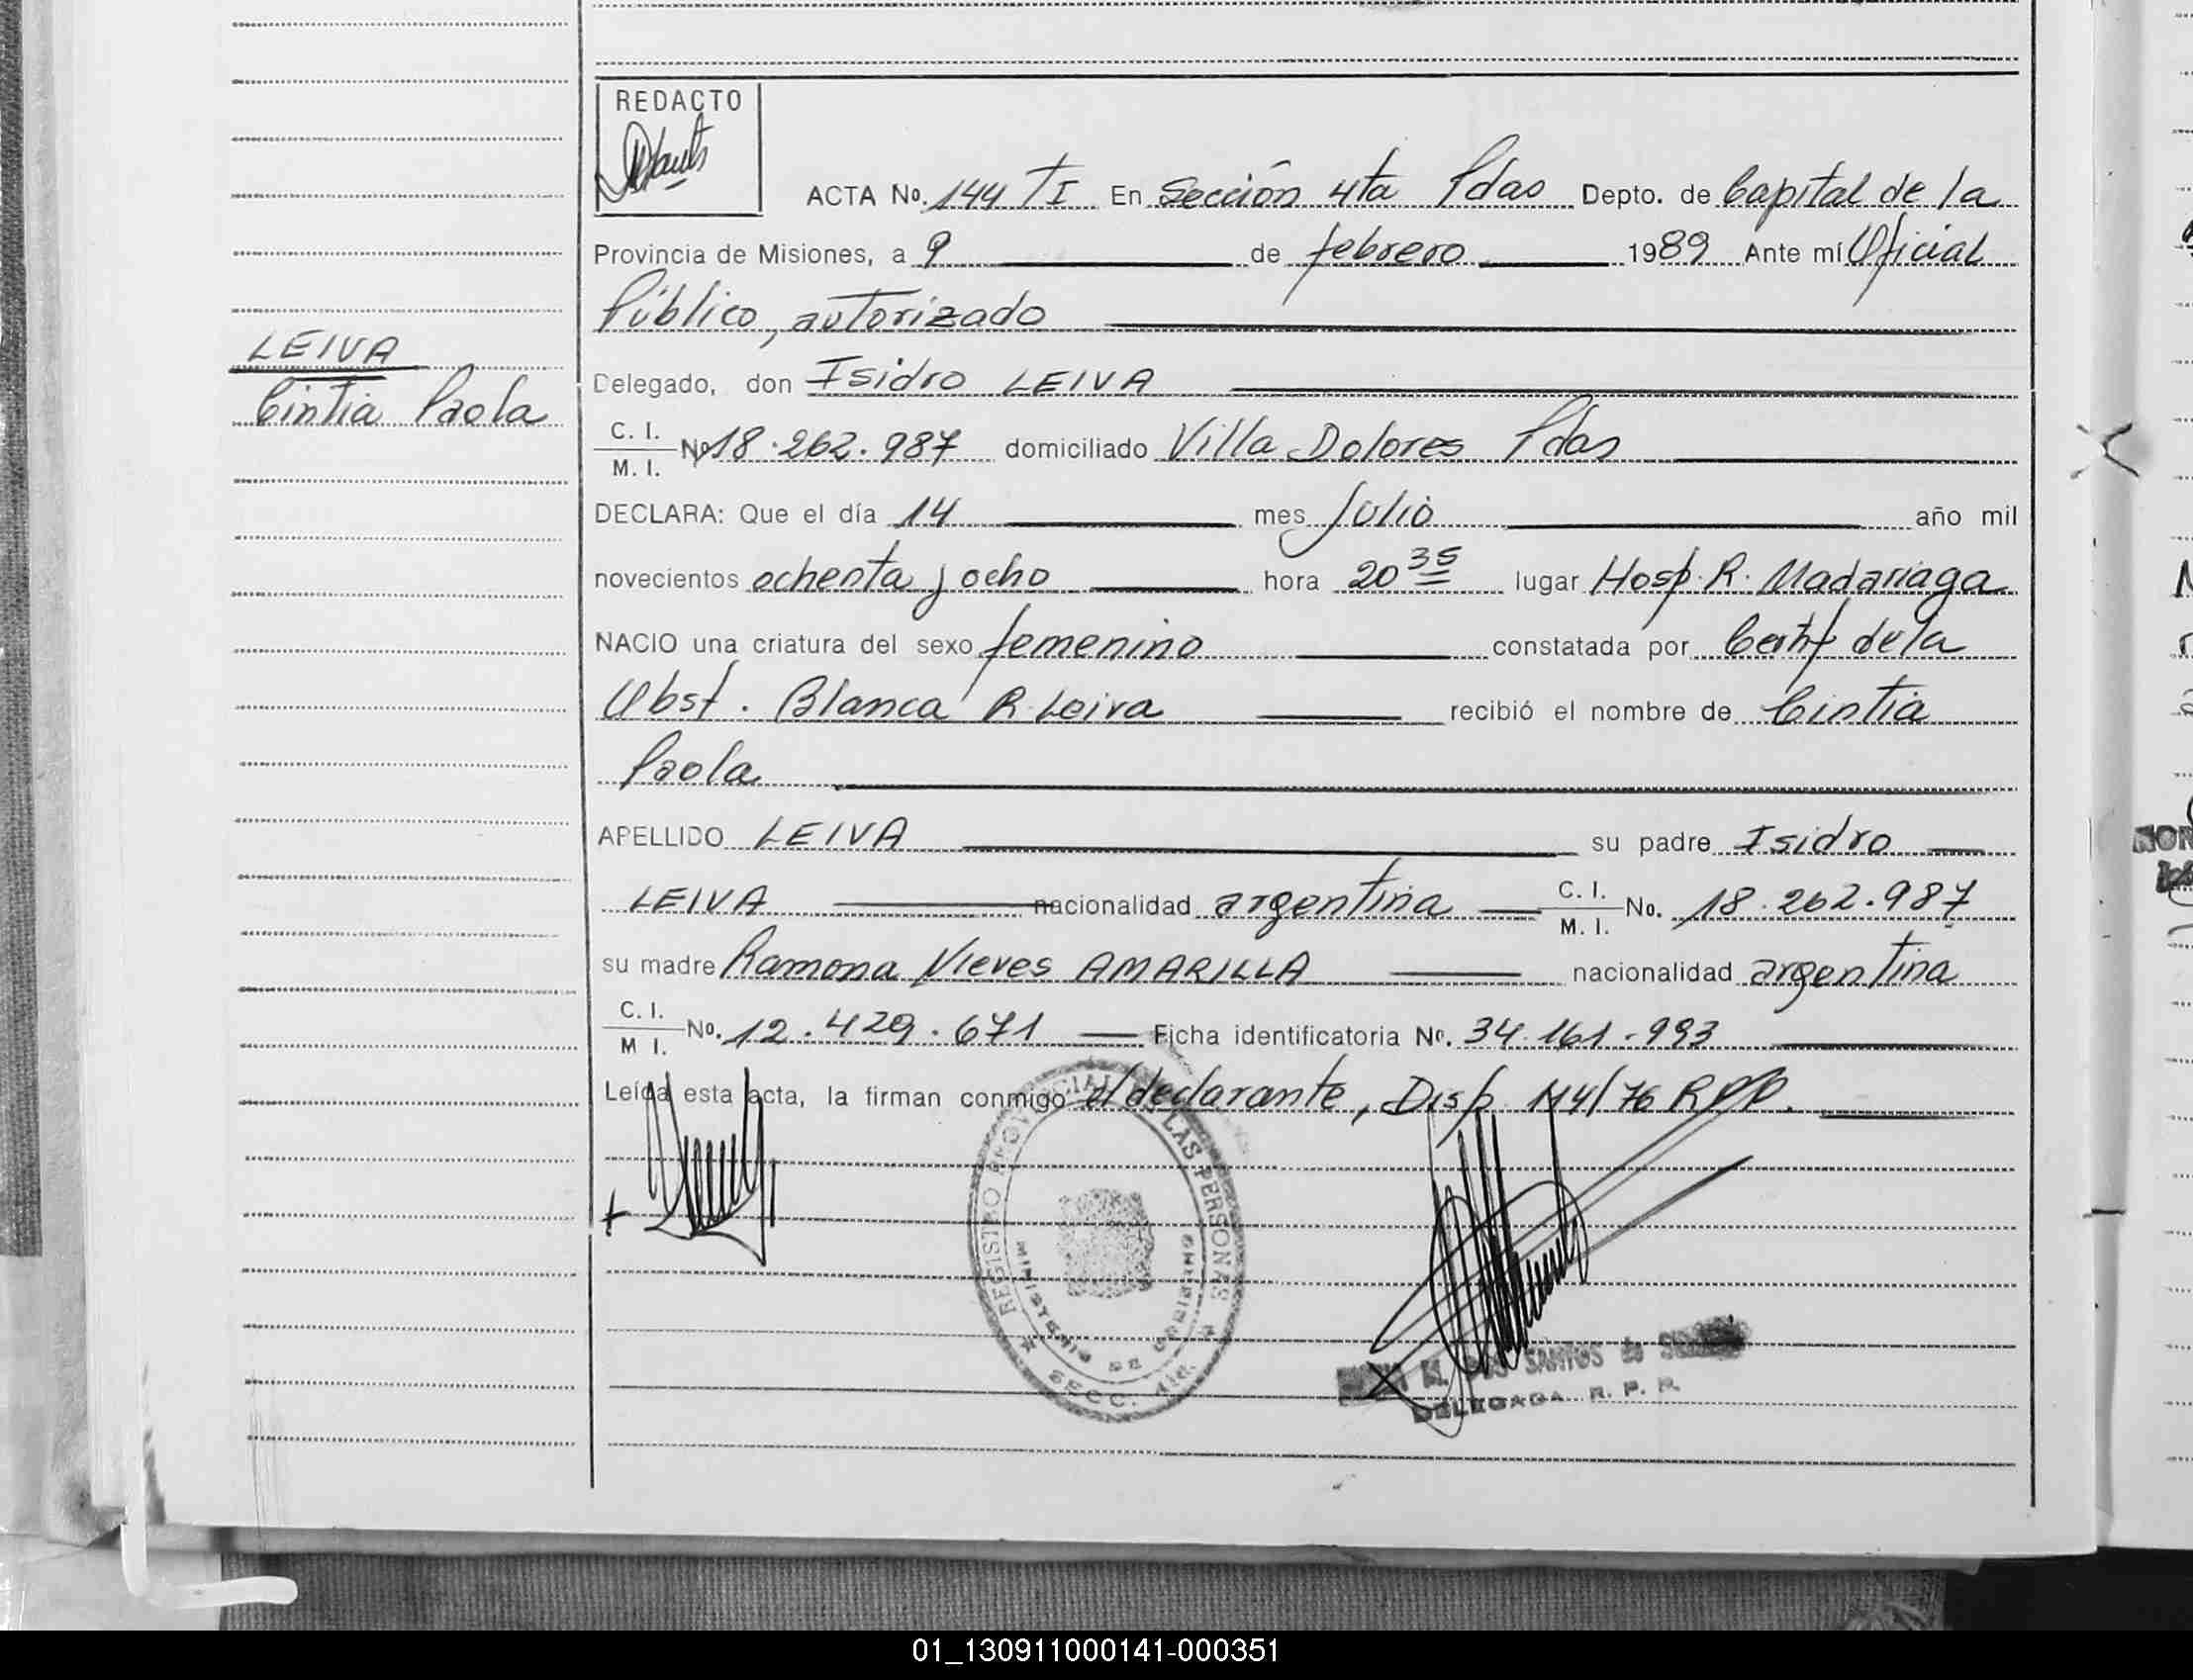 REDACTO
ACTA No. 144 TI En Sección 4ta Pdas Depto. de Capital de la
Provincia de Misiones, a 9 de febrero 1989 Ante mí Oficial
Público, autorizado
LEIVA
Cintia Paola
Delegado, don Isidro LEIVA
C. I.
M. I.
No 18.262.987 domiciliado Villa Dolores Pdas
DECLARA: Que el día 14 mes Julio año mil
novecientos ochenta y ocho hora 20 35 lugar Hosp. R. Madariaga
NACIO una criatura del sexo femenino constatada por Certif de la
Obst. Blanca R. Leiva recibió el nombre de Cintia
Paola
APELLIDO LEIVA su padre Isidro
LEIVA nacionalidad argentina C. I. M. I. No. 18.262.987
su madre Ramona Nieves AMARILLA nacionalidad argentina
C. I. M I. No. 12.429.671 Ficha identificatoria No. 34.161.993
Leída esta acta, la firman conmigo el declarante, Disp. 114/76 RPP.
REGISTRO PROVINCIAL LAS PERSONAS
MINISTERIO DE GOBIERNO
SECC. 4ta
SANTOS de
DELEGADA R. P. P.
01_130911000141-000351